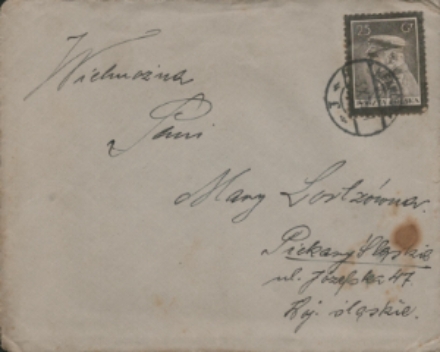 25 Gr
Wielmożna
Pani
Mary
Piekary Śląskie
ul. Józefska 47.
Woj. śląskie.